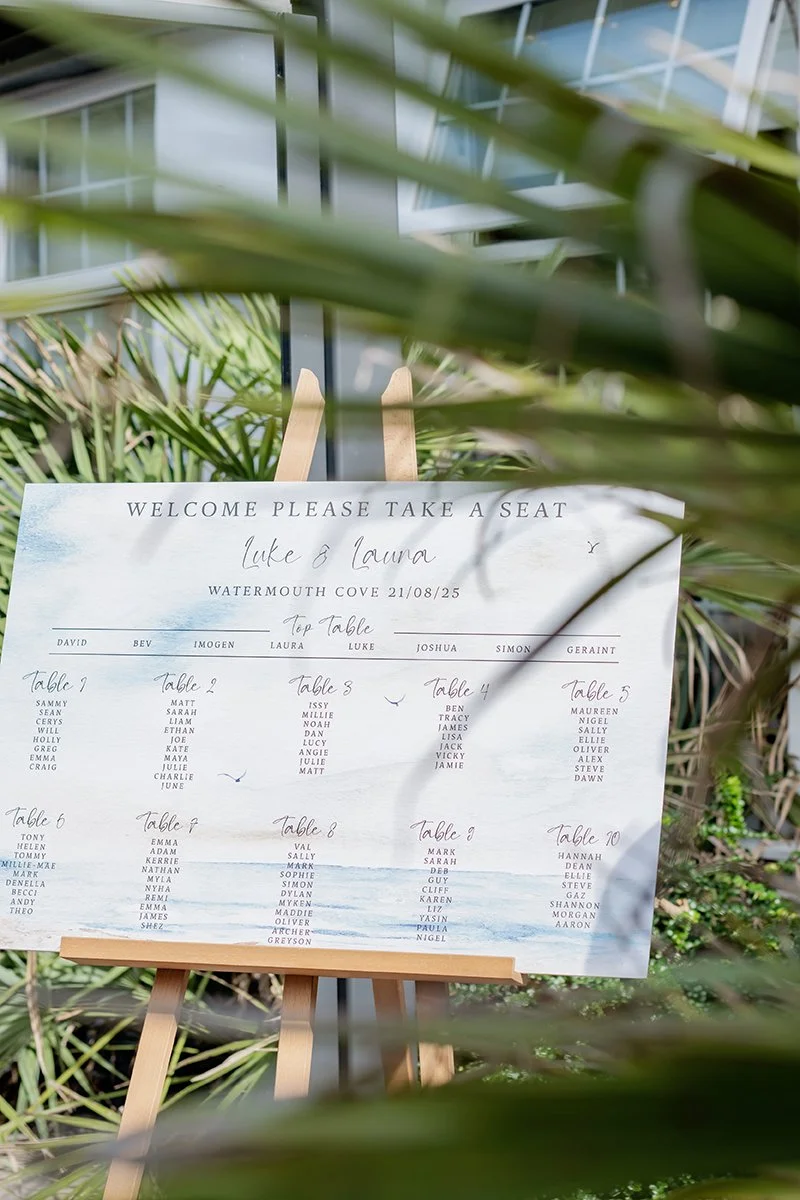 WELCOME PLEASE TAKE A SEAT
Luke & Laura
WATERMOUTH COVE 21/08/25
Top Table
DAVID BEV IMOGEN LAURA LUKE JOSHUA SIMON GERAINT
Table 1
SAMMY
SEAN
CERYS
WILL
HOLLY
GREG
EMMA
CRAIG
Table 2
MATT
SARAH
LIAM
ETHAN
JOE
KATE
MAYA
JULIE
CHARLIE
JUNE
Table 3
ISSY
MILLIE
NOAH
DAN
LUCY
ANGIE
JULIE
MATT
Table 4
BEN
TRACY
JAMES
LISA
JACK
VICKY
JAMIE
Table 5
MAUREEN
NIGEL
SALLY
ELLIE
OLIVER
ALEX
STEVE
DAWN
Table 6
TONY
HELEN
TOMMY
MILLIE-MAE
MARK
DENELLA
BECCI
ANDY
THEO
Table 7
EMMA
ADAM
KERRIE
NATHAN
MYLA
NYHA
REMI
EMMA
JAMES
SHEZ
Table 8
VAL
SALLY
MARK
SOPHIE
SIMON
DYLAN
MYKEN
MADDIE
OLIVER
ARCHER
GREYSON
Table 9
MARK
SARAH
DEB
GUY
CLIFF
KAREN
LIZ
YASIN
PAULA
NIGEL
Table 10
HANNAH
DEAN
ELLIE
STEVE
GAZ
SHANNON
MORGAN
AARON